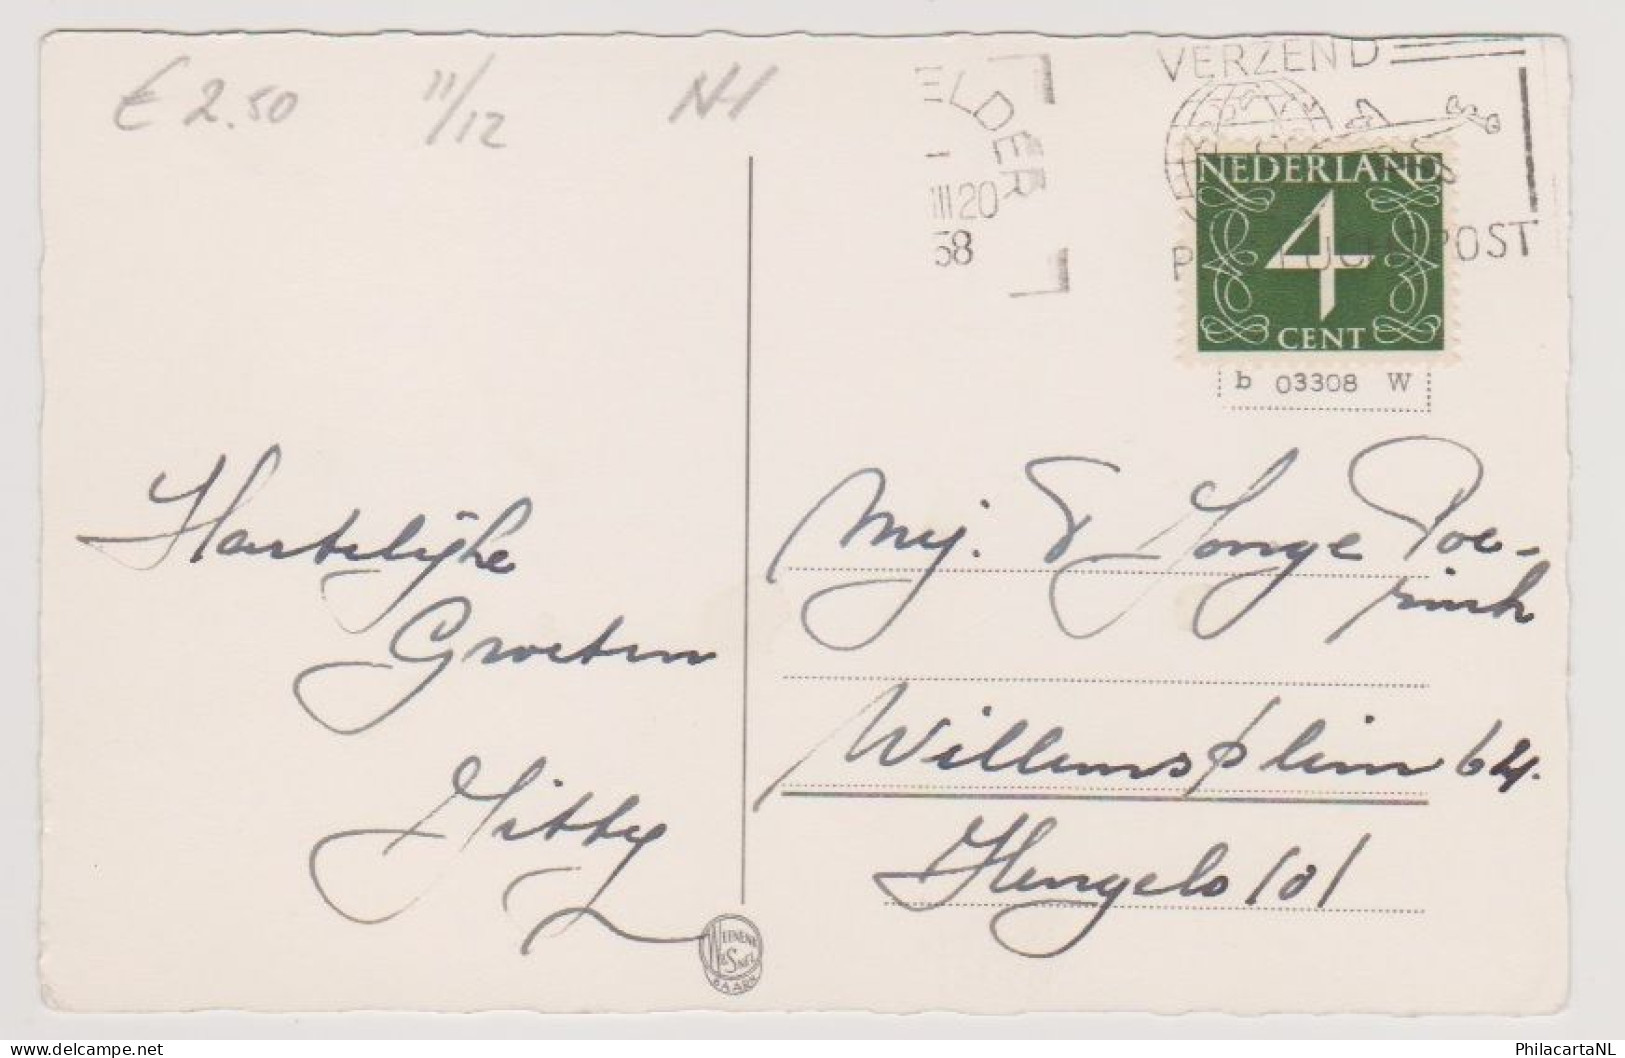 € 2.50 11/12 NH
ELDER
III 20
58
VERZEND
PER LUCHTPOST
NEDERLAND
4
CENT
b 03308 W
Hartelijke
Groeten
Mej. Jonge Poe-
rink
Willemsplein 64.
Hengelo (O)
WEENENK
& SNEL
BAARN
PhilacartaNL